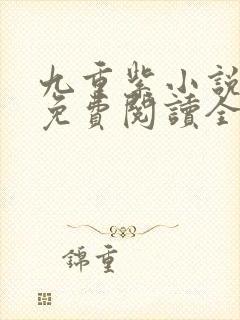 九重紫小說
免費閱讀全
錦重